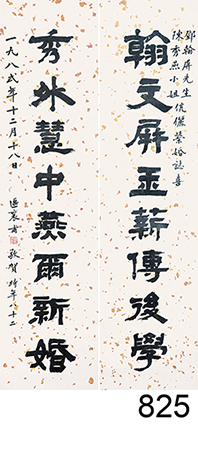 鄧翰屏先生
陳秀燕小姐伉儷榮婚誌喜
翰文屏玉薪傳後學
秀外慧中燕爾新婚
一九八式年十二月十八日
敬賀時年八十二
825